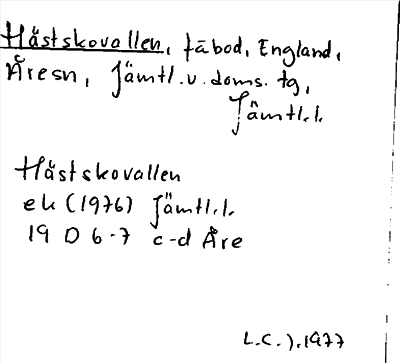 Hästskovallen, fäbod, England,
Åresn, Jämtl.v.doms. tg,
Jämtl.l.
Hästskovallen
ek (1976) Jämtl.l.
19 D 6-7 c-d Åre
L.C.J. 1977